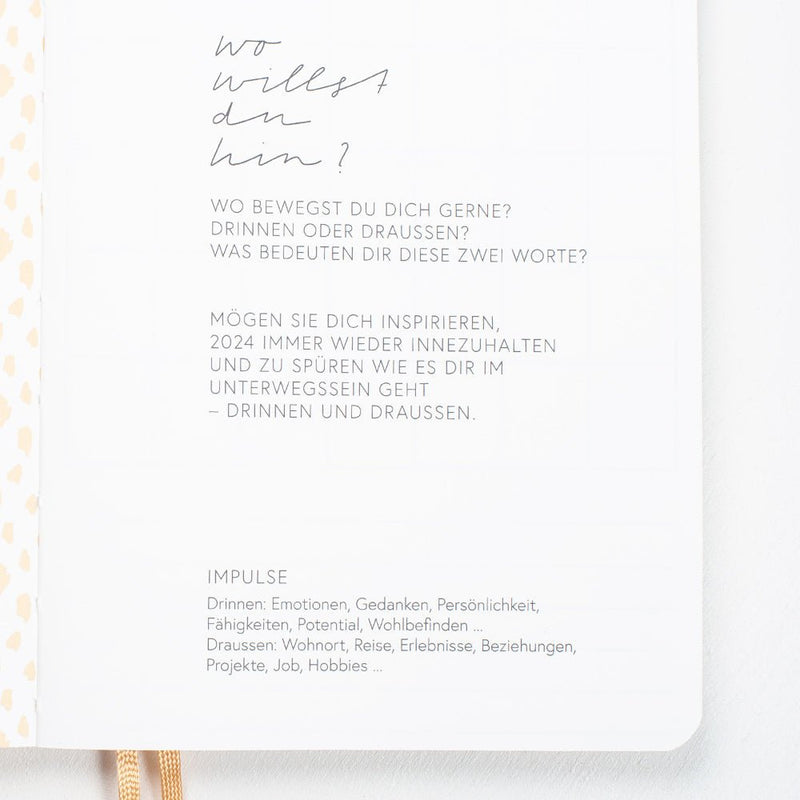 wo
willst
du
hin?
WO BEWEGST DU DICH GERNE?
DRINNEN ODER DRAUSSEN?
WAS BEDEUTEN DIR DIESE ZWEI WORTE?
MÖGEN SIE DICH INSPIRIEREN,
2024 IMMER WIEDER INNEZUHALTEN
UND ZU SPÜREN WIE ES DIR IM
UNTERWEGSSEIN GEHT
– DRINNEN UND DRAUSSEN.
IMPULSE
Drinnen: Emotionen, Gedanken, Persönlichkeit,
Fähigkeiten, Potential, Wohlbefinden ...
Draussen: Wohnort, Reise, Erlebnisse, Beziehungen,
Projekte, Job, Hobbies ...